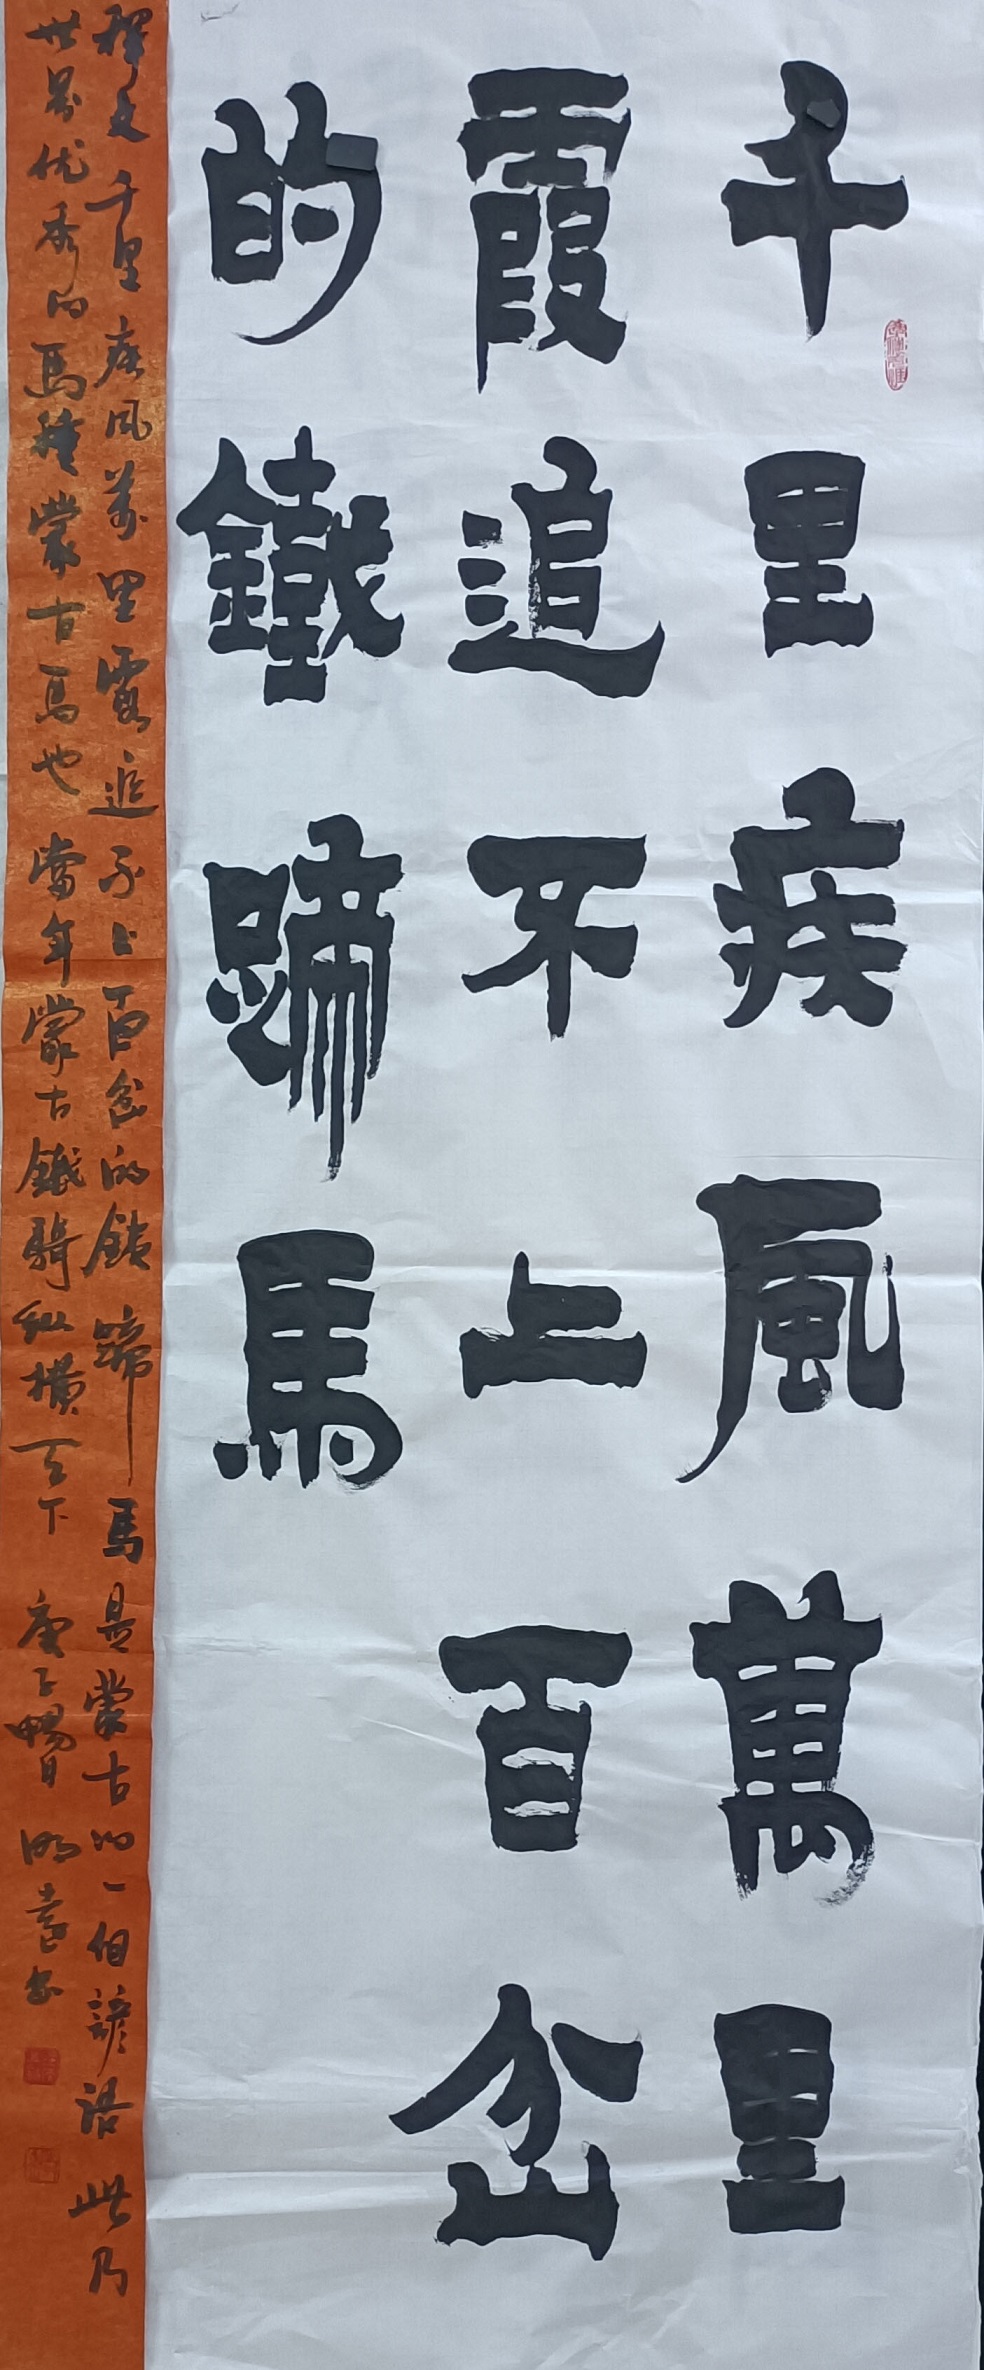 千里疾風萬里
霞追不上百岔
的鐵蹄馬
释文千里疾风萬里霞追不上百岔的鉄蹄馬是蒙古的一個諺语此乃
世界优秀的馬種蒙古馬也當年蒙古鐵騎纵横天下庚子暢月